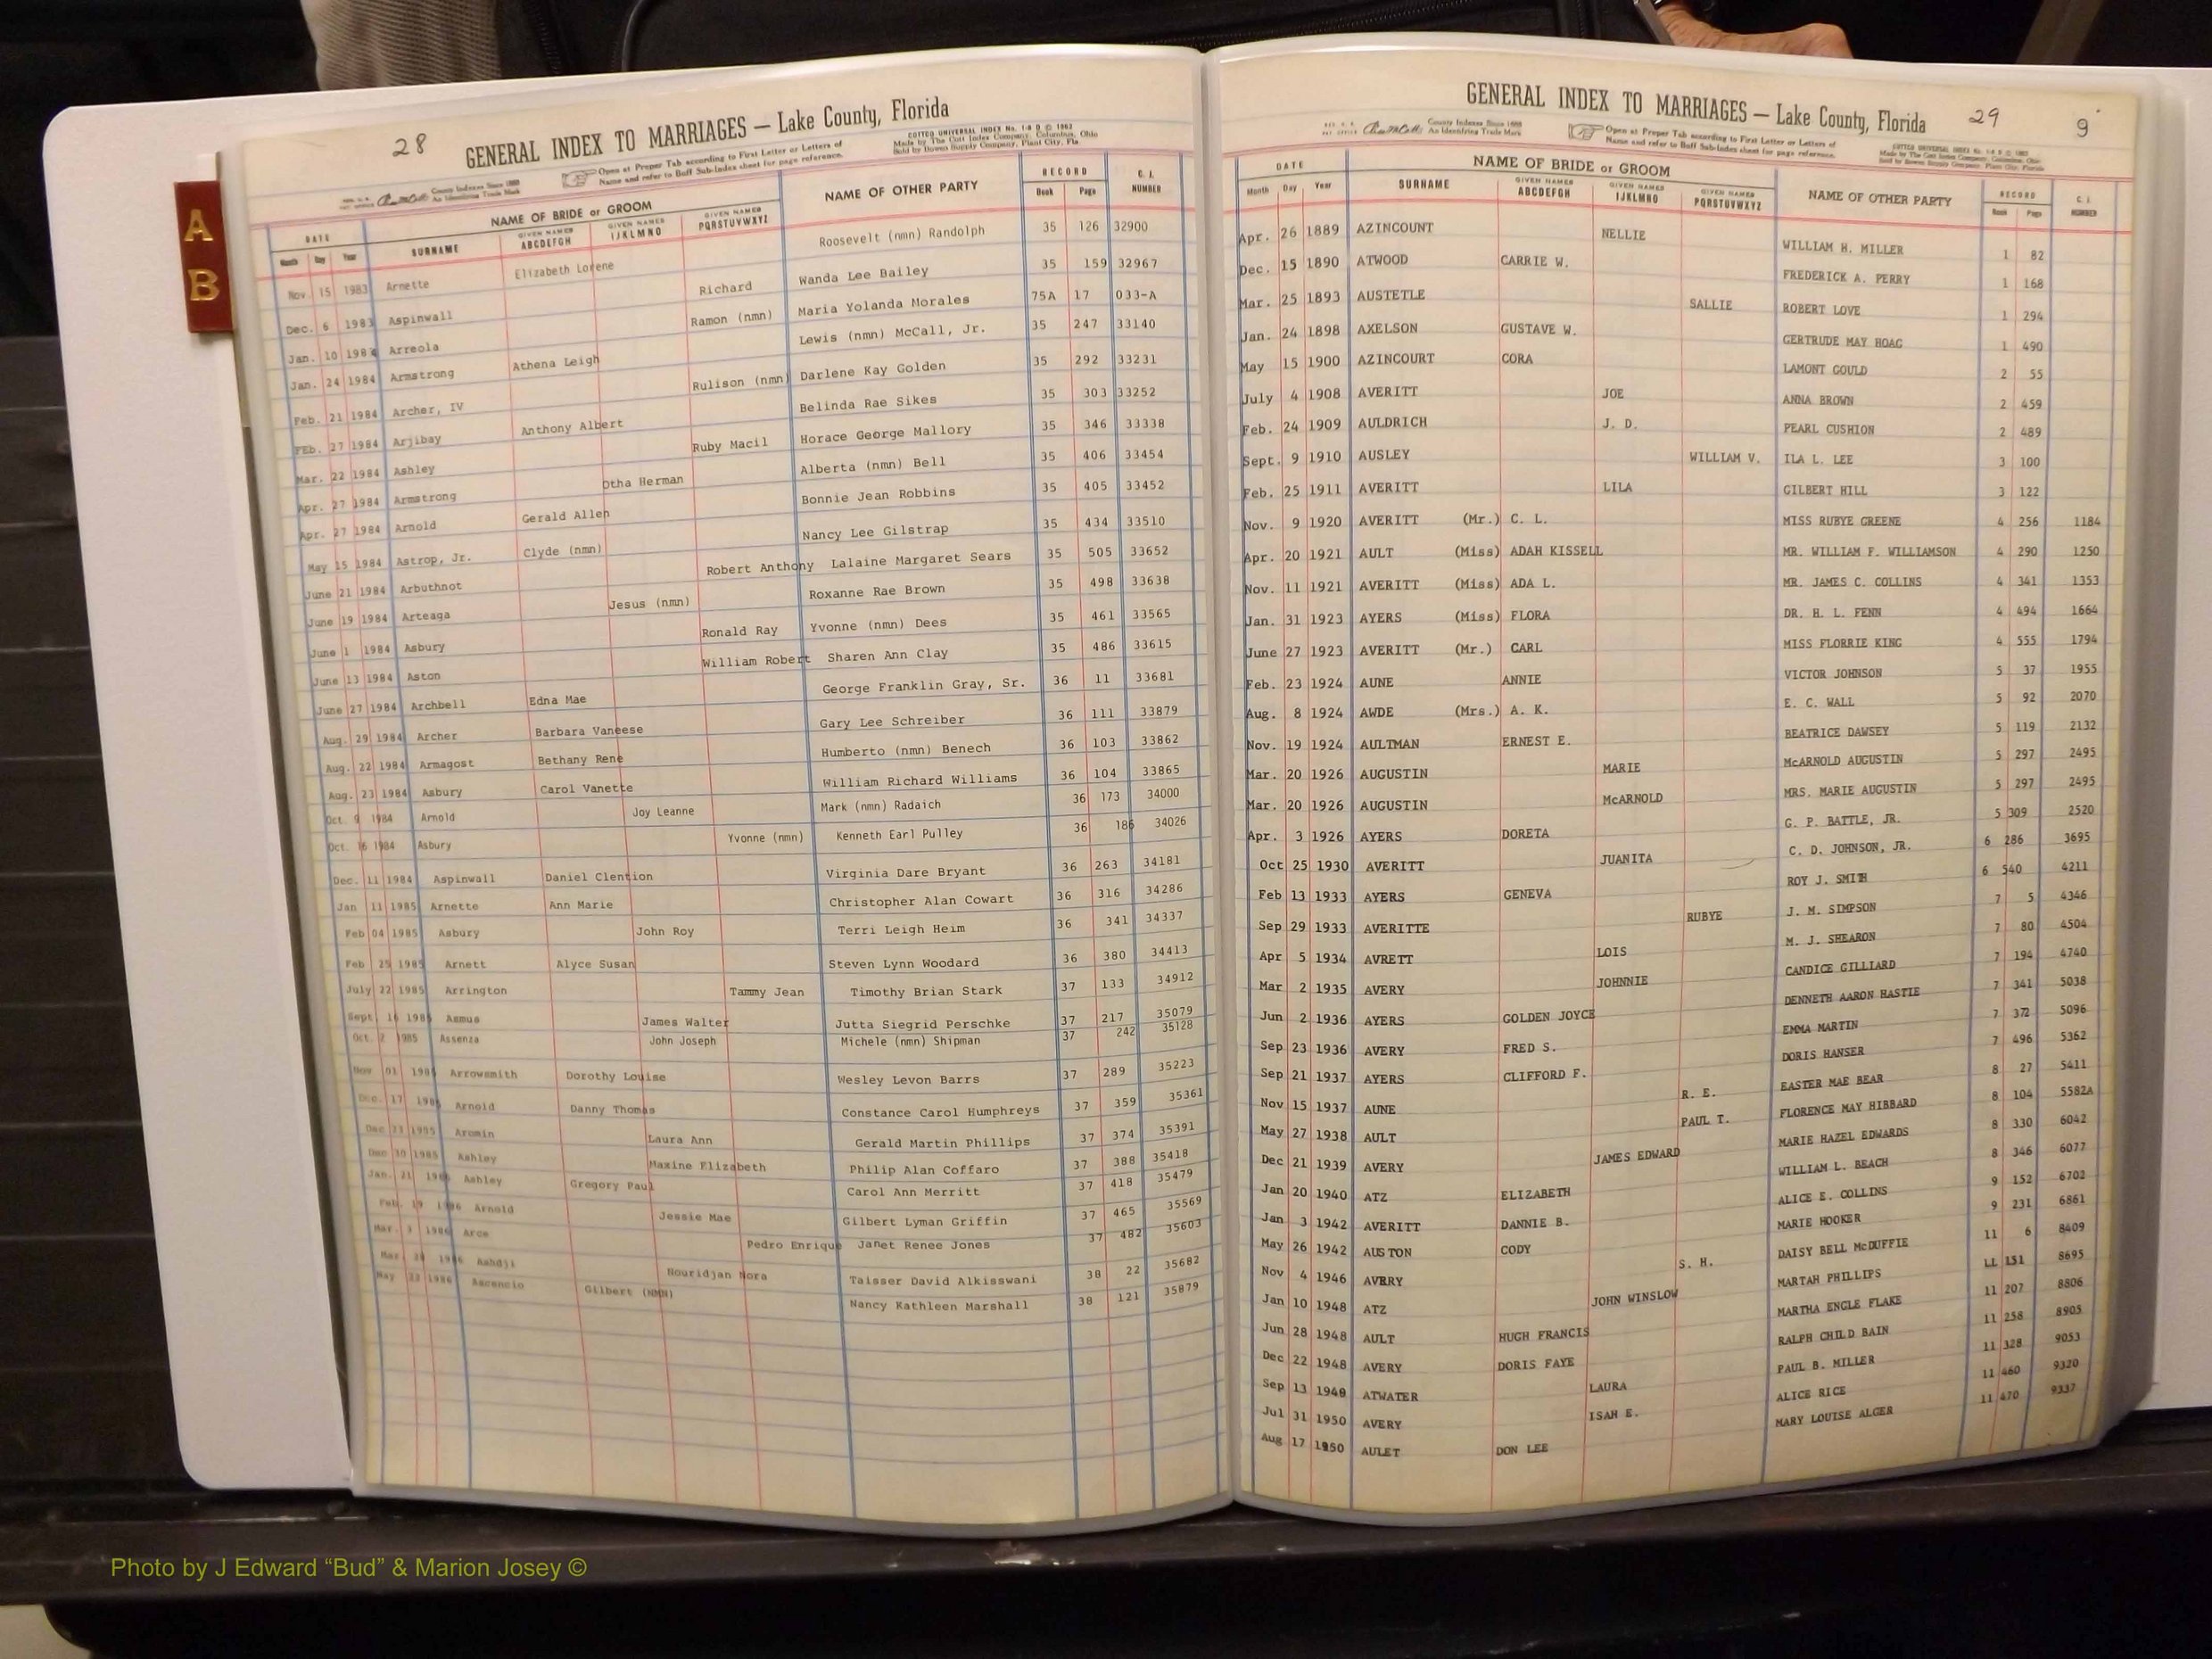 A
B
28
GENERAL INDEX TO MARRIAGES — Lake County, Florida
COTTCO UNIVERSAL INDEX No. 1-8 D © 1962
Made by The Cott Index Company, Columbus, Ohio
Sold by Bowen Supply Company, Plant City, Fla
County Indexes Since 1888
An Identifying Trade Mark
Open at Proper Tab according to First Letter or Letters of
Name and refer to Buff Sub-Index sheet for page reference.
DATE NAME OF BRIDE or GROOM NAME OF OTHER PARTY RECORD C. I. NUMBER
Month Day Year SURNAME GIVEN NAMES ABCDEFGH GIVEN NAMES IJKLMNO GIVEN NAMES PQRSTUVWXYZ Book Page
Nov. 15 1983 Arnette Elizabeth Lorene Roosevelt (nmn) Randolph 35 126 32900
Dec. 6 1983 Aspinwall Richard Wanda Lee Bailey 35 159 32967
Jan. 10 1984 Arreola Ramon (nmn) Maria Yolanda Morales 75A 17 033-A
Jan. 24 1984 Armstrong Athena Leigh Lewis (nmn) McCall, Jr. 35 247 33140
Feb. 21 1984 Archer, IV Rulison (nmn) Darlene Kay Golden 35 292 33231
FEb. 27 1984 Arjibay Anthony Albert Belinda Rae Sikes 35 303 33252
Mar. 22 1984 Ashley Ruby Macil Horace George Mallory 35 346 33338
Apr. 27 1984 Armstrong Otha Herman Alberta (nmn) Bell 35 406 33454
Apr. 27 1984 Arnold Gerald Allen Bonnie Jean Robbins 35 405 33452
May 15 1984 Astrop, Jr. Clyde (nmn) Nancy Lee Gilstrap 35 434 33510
June 21 1984 Arbuthnot Robert Anthony Lalaine Margaret Sears 35 505 33652
June 19 1984 Arteaga Jesus (nmn) Roxanne Rae Brown 35 498 33638
June 1 1984 Asbury Ronald Ray Yvonne (nmn) Dees 35 461 33565
June 13 1984 Aston William Robert Sharen Ann Clay 35 486 33615
June 27 1984 Archbell Edna Mae George Franklin Gray, Sr. 36 11 33681
Aug. 29 1984 Archer Barbara Vaneese Gary Lee Schreiber 36 111 33879
Aug. 22 1984 Armagost Bethany Rene Humberto (nmn) Benech 36 103 33862
Aug. 23 1984 Asbury Carol Vanette William Richard Williams 36 104 33865
Oct. 9 1984 Arnold Joy Leanne Mark (nmn) Radaich 36 173 34000
Oct. 16 1984 Asbury Yvonne (nmn) Kenneth Earl Pulley 36 186 34026
Dec. 11 1984 Aspinwall Daniel Clention Virginia Dare Bryant 36 263 34181
Jan 11 1985 Arnette Ann Marie Christopher Alan Cowart 36 316 34286
Feb 04 1985 Asbury John Roy Terri Leigh Heim 36 341 34337
Feb 25 1985 Arnett Alyce Susan Steven Lynn Woodard 36 380 34413
July 22 1985 Arrington Tammy Jean Timothy Brian Stark 37 133 34912
Sept. 16 1985 Asmus James Walter Jutta Siegrid Perschke 37 217 35079
Oct. 2 1985 Assenza John Joseph Michele (nmn) Shipman 37 242 35128
Nov 01 1985 Arrowsmith Dorothy Louise Wesley Levon Barrs 37 289 35223
Dec. 17 1985 Arnold Danny Thomas Constance Carol Humphreys 37 359 35361
Dec 23 1985 Aromin Laura Ann Gerald Martin Phillips 37 374 35391
Dec 30 1985 Ashley Maxine Elizabeth Philip Alan Coffaro 37 388 35418
Jan. 21 1986 Ashley Gregory Paul Carol Ann Merritt 37 418 35479
Feb. 19 1986 Arnold Jessie Mae Gilbert Lyman Griffin 37 465 35569
Mar. 3 1986 Arce Pedro Enrique Janet Renee Jones 37 482 35603
Mar. 1986 Ashdji Nouridjan Nora Taisser David Alkisswani 38 22 35682
May 22 1986 Ascencio Gilbert (NMN) Nancy Kathleen Marshall 38 121 35879
29 9
GENERAL INDEX TO MARRIAGES — Lake County, Florida
County Indexes Since 1888
An Identifying Trade Mark
Open at Proper Tab according to First Letter or Letters of
Name and refer to Buff Sub-Index sheet for page reference.
COTTCO UNIVERSAL INDEX No. 1-8 D © 1962
Made by The Cott Index Company, Columbus, Ohio
Sold by Bowen Supply Company, Plant City, Florida
DATE NAME OF BRIDE or GROOM NAME OF OTHER PARTY RECORD C. I. NUMBER
Month Day Year SURNAME GIVEN NAMES ABCDEFGH GIVEN NAMES IJKLMNO GIVEN NAMES PQRSTUVWXYZ Book Page
Apr. 26 1889 AZINCOUNT NELLIE WILLIAM H. MILLER 1 82
Dec. 15 1890 ATWOOD CARRIE W. FREDERICK A. PERRY 1 168
Mar. 25 1893 AUSTETLE SALLIE ROBERT LOVE 1 294
Jan. 24 1898 AXELSON GUSTAVE W. GERTRUDE MAY HOAG 1 490
May 15 1900 AZINCOURT CORA LAMONT GOULD 2 55
July 4 1908 AVERITT JOE ANNA BROWN 2 459
Feb. 24 1909 AULDRICH J. D. PEARL CUSHION 2 489
Sept. 9 1910 AUSLEY WILLIAM V. ILA L. LEE 3 100
Feb. 25 1911 AVERITT LILA GILBERT HILL 3 122
Nov. 9 1920 AVERITT (Mr.) C. L. MISS RUBYE GREENE 4 256 1184
Apr. 20 1921 AULT (Miss) ADAH KISSELL MR. WILLIAM F. WILLIAMSON 4 290 1250
Nov. 11 1921 AVERITT (Miss) ADA L. MR. JAMES C. COLLINS 4 341 1353
Jan. 31 1923 AYERS (Miss) FLORA DR. H. L. FENN 4 494 1664
June 27 1923 AVERITT (Mr.) CARL MISS FLORRIE KING 4 555 1794
Feb. 23 1924 AUNE ANNIE VICTOR JOHNSON 5 37 1955
Aug. 8 1924 AWDE (Mrs.) A. K. E. C. WALL 5 92 2070
Nov. 19 1924 AULTMAN ERNEST E. BEATRICE DAWSEY 5 119 2132
Mar. 20 1926 AUGUSTIN MARIE McARNOLD AUGUSTIN 5 297 2495
Mar. 20 1926 AUGUSTIN McARNOLD MRS. MARIE AUGUSTIN 5 297 2495
Apr. 3 1926 AYERS DORETA G. P. BATTLE, JR. 5 309 2520
Oct 25 1930 AVERITT JUANITA C. D. JOHNSON, JR. 6 286 3695
Feb 13 1933 AYERS GENEVA ROY J. SMITH 6 540 4211
Sep 29 1933 AVERITTE RUBYE J. M. SIMPSON 7 5 4346
Apr 5 1934 AVRETT LOIS M. J. SHEARON 7 80 4504
Mar 2 1935 AVERY JOHNNIE CANDICE GILLIARD 7 194 4740
Jun 2 1936 AYERS GOLDEN JOYCE DENNETH AARON HASTIE 7 341 5038
Sep 23 1936 AVERY FRED S. EMMA MARTIN 7 372 5096
Sep 21 1937 AYERS CLIFFORD F. DORIS HANSER 7 496 5362
Nov 15 1937 AUNE R. E. EASTER MAE BEAR 8 27 5411
May 27 1938 AULT PAUL T. FLORENCE MAY HIBBARD 8 104 5582A
Dec 21 1939 AVERY JAMES EDWARD MARIE HAZEL EDWARDS 8 330 6042
Jan 20 1940 ATZ ELIZABETH WILLIAM L. BEACH 8 346 6077
Jan 3 1942 AVERITT DANNIE B. ALICE E. COLLINS 9 152 6702
May 26 1942 AUSTON CODY MARIE HOOKER 9 231 6861
Nov 4 1946 AVERY S. H. DAISY BELL McDUFFIE 11 6 8409
Jan 10 1948 ATZ JOHN WINSLOW MARTAH PHILLIPS 11 151 8695
Jun 28 1948 AULT HUGH FRANCIS MARTHA ENGLE FLAKE 11 207 8806
Dec 22 1948 AVERY DORIS FAYE RALPH CHILD BAIN 11 258 8905
Sep 13 1949 ATWATER LAURA PAUL B. MILLER 11 328 9053
Jul 31 1950 AVERY ISAH E. ALICE RICE 11 460 9320
Aug 17 1950 AULET DON LEE MARY LOUISE ALGER 11 470 9337
Photo by J Edward “Bud” & Marion Josey ©